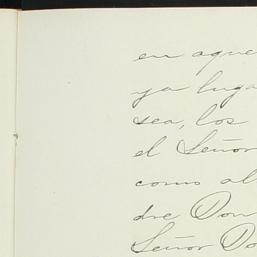 en aque
ya luga
sea, los
el Señor
como al
dre Don
Señor Do